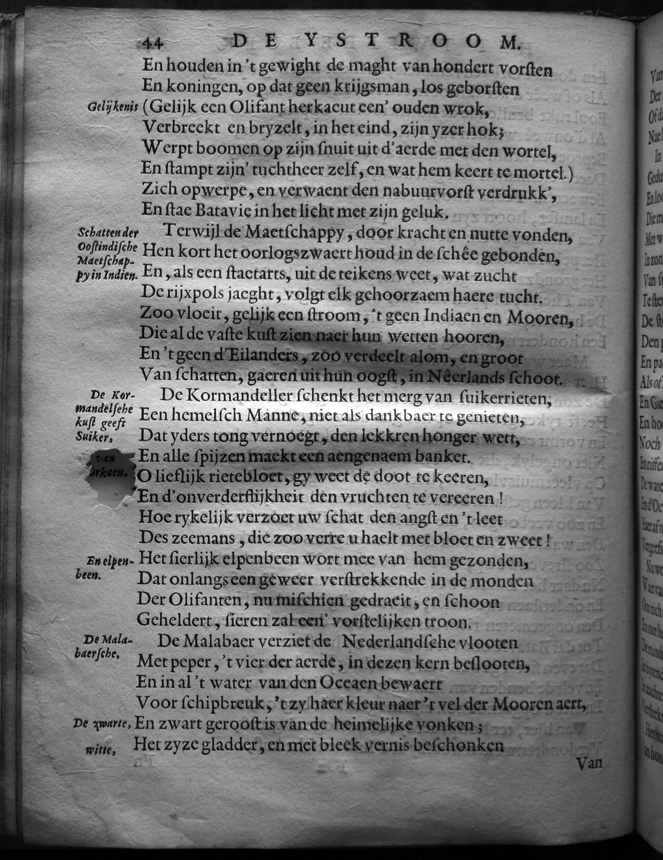 44 DE YSTROOM.
En houden in 't gewight de maght van hondert vorsten
En koningen, op dat geen krijgsman, los geborsten
Gelijkenis (Gelijk een Olifant herkaeut een' ouden wrok,
Verbreekt en bryzelt, in het eind, zijn yzer hok;
Werpt boomen op zijn snuit uit d'aerde met den wortel,
En stampt zijn' tuchtheer zelf, en wat hem keert te mortel.)
Zich opwerpe, en verwaent den nabuurvorst verdrukk',
En stae Batavie in het licht met zijn geluk.
Schatten der Oostindische Maetschap-py in Indien.
Terwijl de Maetschappy, door kracht en nutte vonden,
Hen kort het oorlogszwaert houd in de schêe gebonden,
En, als een staetarts, uit de teikens weet, wat zucht
De rijxpols jaeght, volgt elk gehoorzaem haere tucht.
Zoo vloeit, gelijk een stroom, 't geen Indiaen en Mooren,
Die al de vaste kust zien naer hun wetten hooren,
En 't geen d'Eilanders, zoo verdeelt alom, en groot
Van schatten, gaeren uit hun oogst, in Nêerlands schoot.
De Kor-mandelsche kust geeft Suiker,
De Kormandeller schenkt het merg van suikerrieten,
Een hemelsch Manne, niet als dankbaer te genieten,
Dat yders tong vernoegt, den lekkren honger wett,
van
En alle spijzen maekt een aengenaem banket.
O lieflijk rietebloet, gy weet de doot te keeren,
En d'onverderflijkheit den vruchten te vereeren!
Hoe rykelijk verzoet uw schat den angst en 't leet
Des zeemans, die zoo verre u haelt met bloet en zweet!
En elpen-been.
Het sierlijk elpenbeen wort mee van hem gezonden,
Dat onlangs een geweer verstrekkende in de monden
Der Olifanten, nu mischien gedraeit, en schoon
Geheldert, sieren zal een' vorstelijken troon.
De Mala-baersche,
De Malabaer verziet de Nederlandsche vlooten
Met peper, 't vier der aerde, in dezen kern beslooten,
En in al 't water van den Oceaen bewaert
Voor schipbreuk, 't zy haer kleur naer 't vel der Mooren aert,
De zwarte, En zwart geroost is van de heimelijke vonken;
witte, Het zyze gladder, en met bleek vernis beschonken
Van